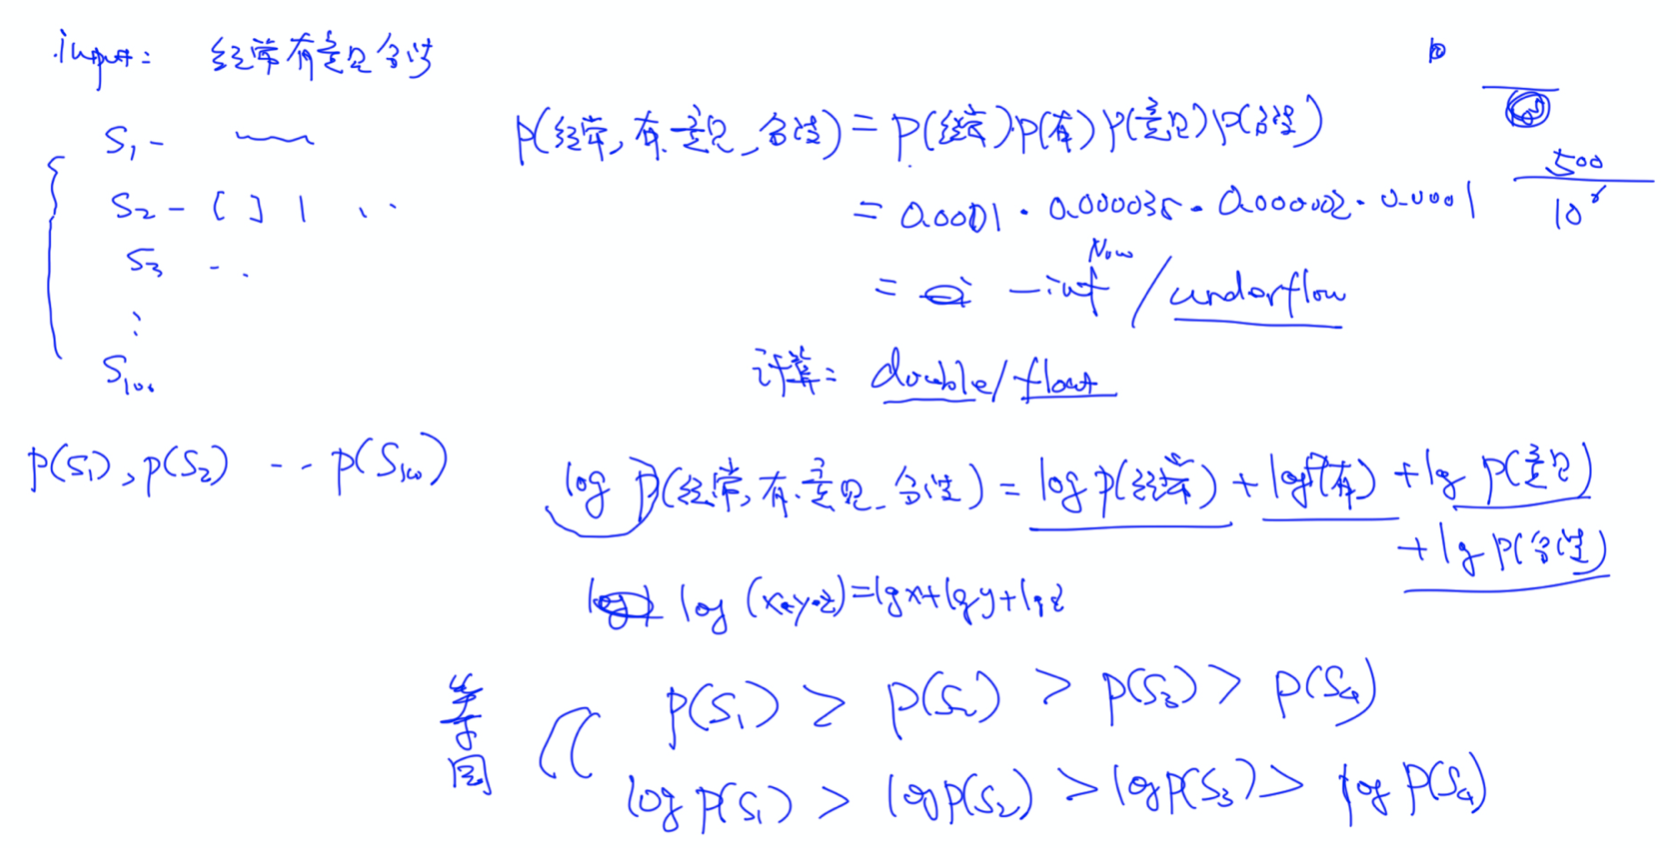 input: 经常有意见分歧
S₁ -
S₂ - [ ] | ..
S₃ - .
⋮
S₁₀₀
p(S₁), p(S₂) -- p(S₁₀₀)
p
500
10⁸
p(经常, 有, 意见, 分歧) = p(经常) p(有) p(意见) p(分歧)
= 0.0001 · 0.000035 · 0.000002 · 0.0001
= -inf / underflow
计算: double/float
log p(经常, 有, 意见, 分歧) = log p(经常) + log p(有) + log p(意见)
+ log p(分歧)
log (x·y·z) = log x + log y + log z
等同
p(S₁) ≥ p(S₂) > p(S₃) > p(S₄)
log p(S₁) > log p(S₂) > log p(S₃) > log p(S₄)